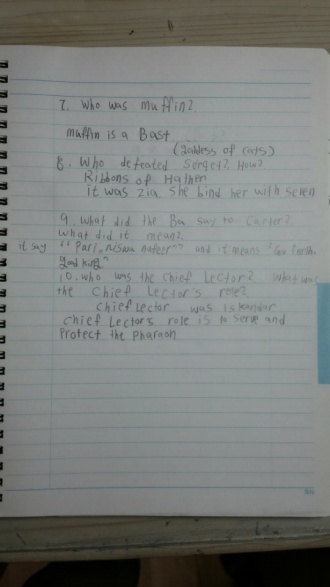 7. Who was muffin?
muffin is a Bast
(goddess of cats)
8. Who defeated Serqet? How?
Ribbons of Hathor
it was zia she bind her with seven
9. what did the Ba say to Carter?
what did it mean?
it say "Pari, niswa nafeer" and it means "Go forth
good king"
10. who was the Chief Lector? what was
the Chief Lector's role?
chief Lector was iskandar
chief Lectors role is to serve and
Protect the pharaoh